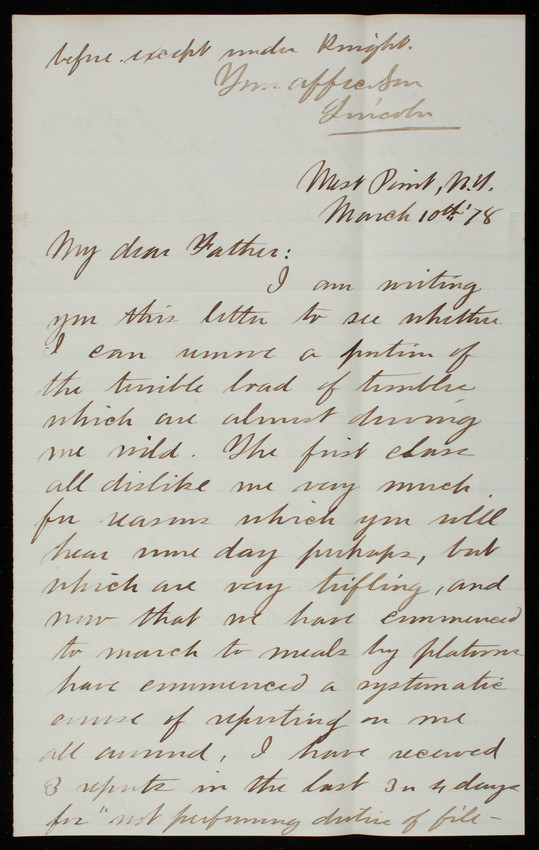 before except under Knight.
Your affec. Son
Lincoln
West Point, N.Y.
March 10th '78
My dear Father:
I am writing
you this letter to see whether
I can remove a portion of
the terrible load of trouble
which are almost driving
me wild. The first class
all dislike me very much
for reasons which you will
hear some day perhaps, but
which are very trifling, and
now that we have commenced
to march to meals by platoons
have commenced a systematic
course of reporting on me
all around, I have received
3 reports in the last 3 or 4 days
for "not performing duties of file-